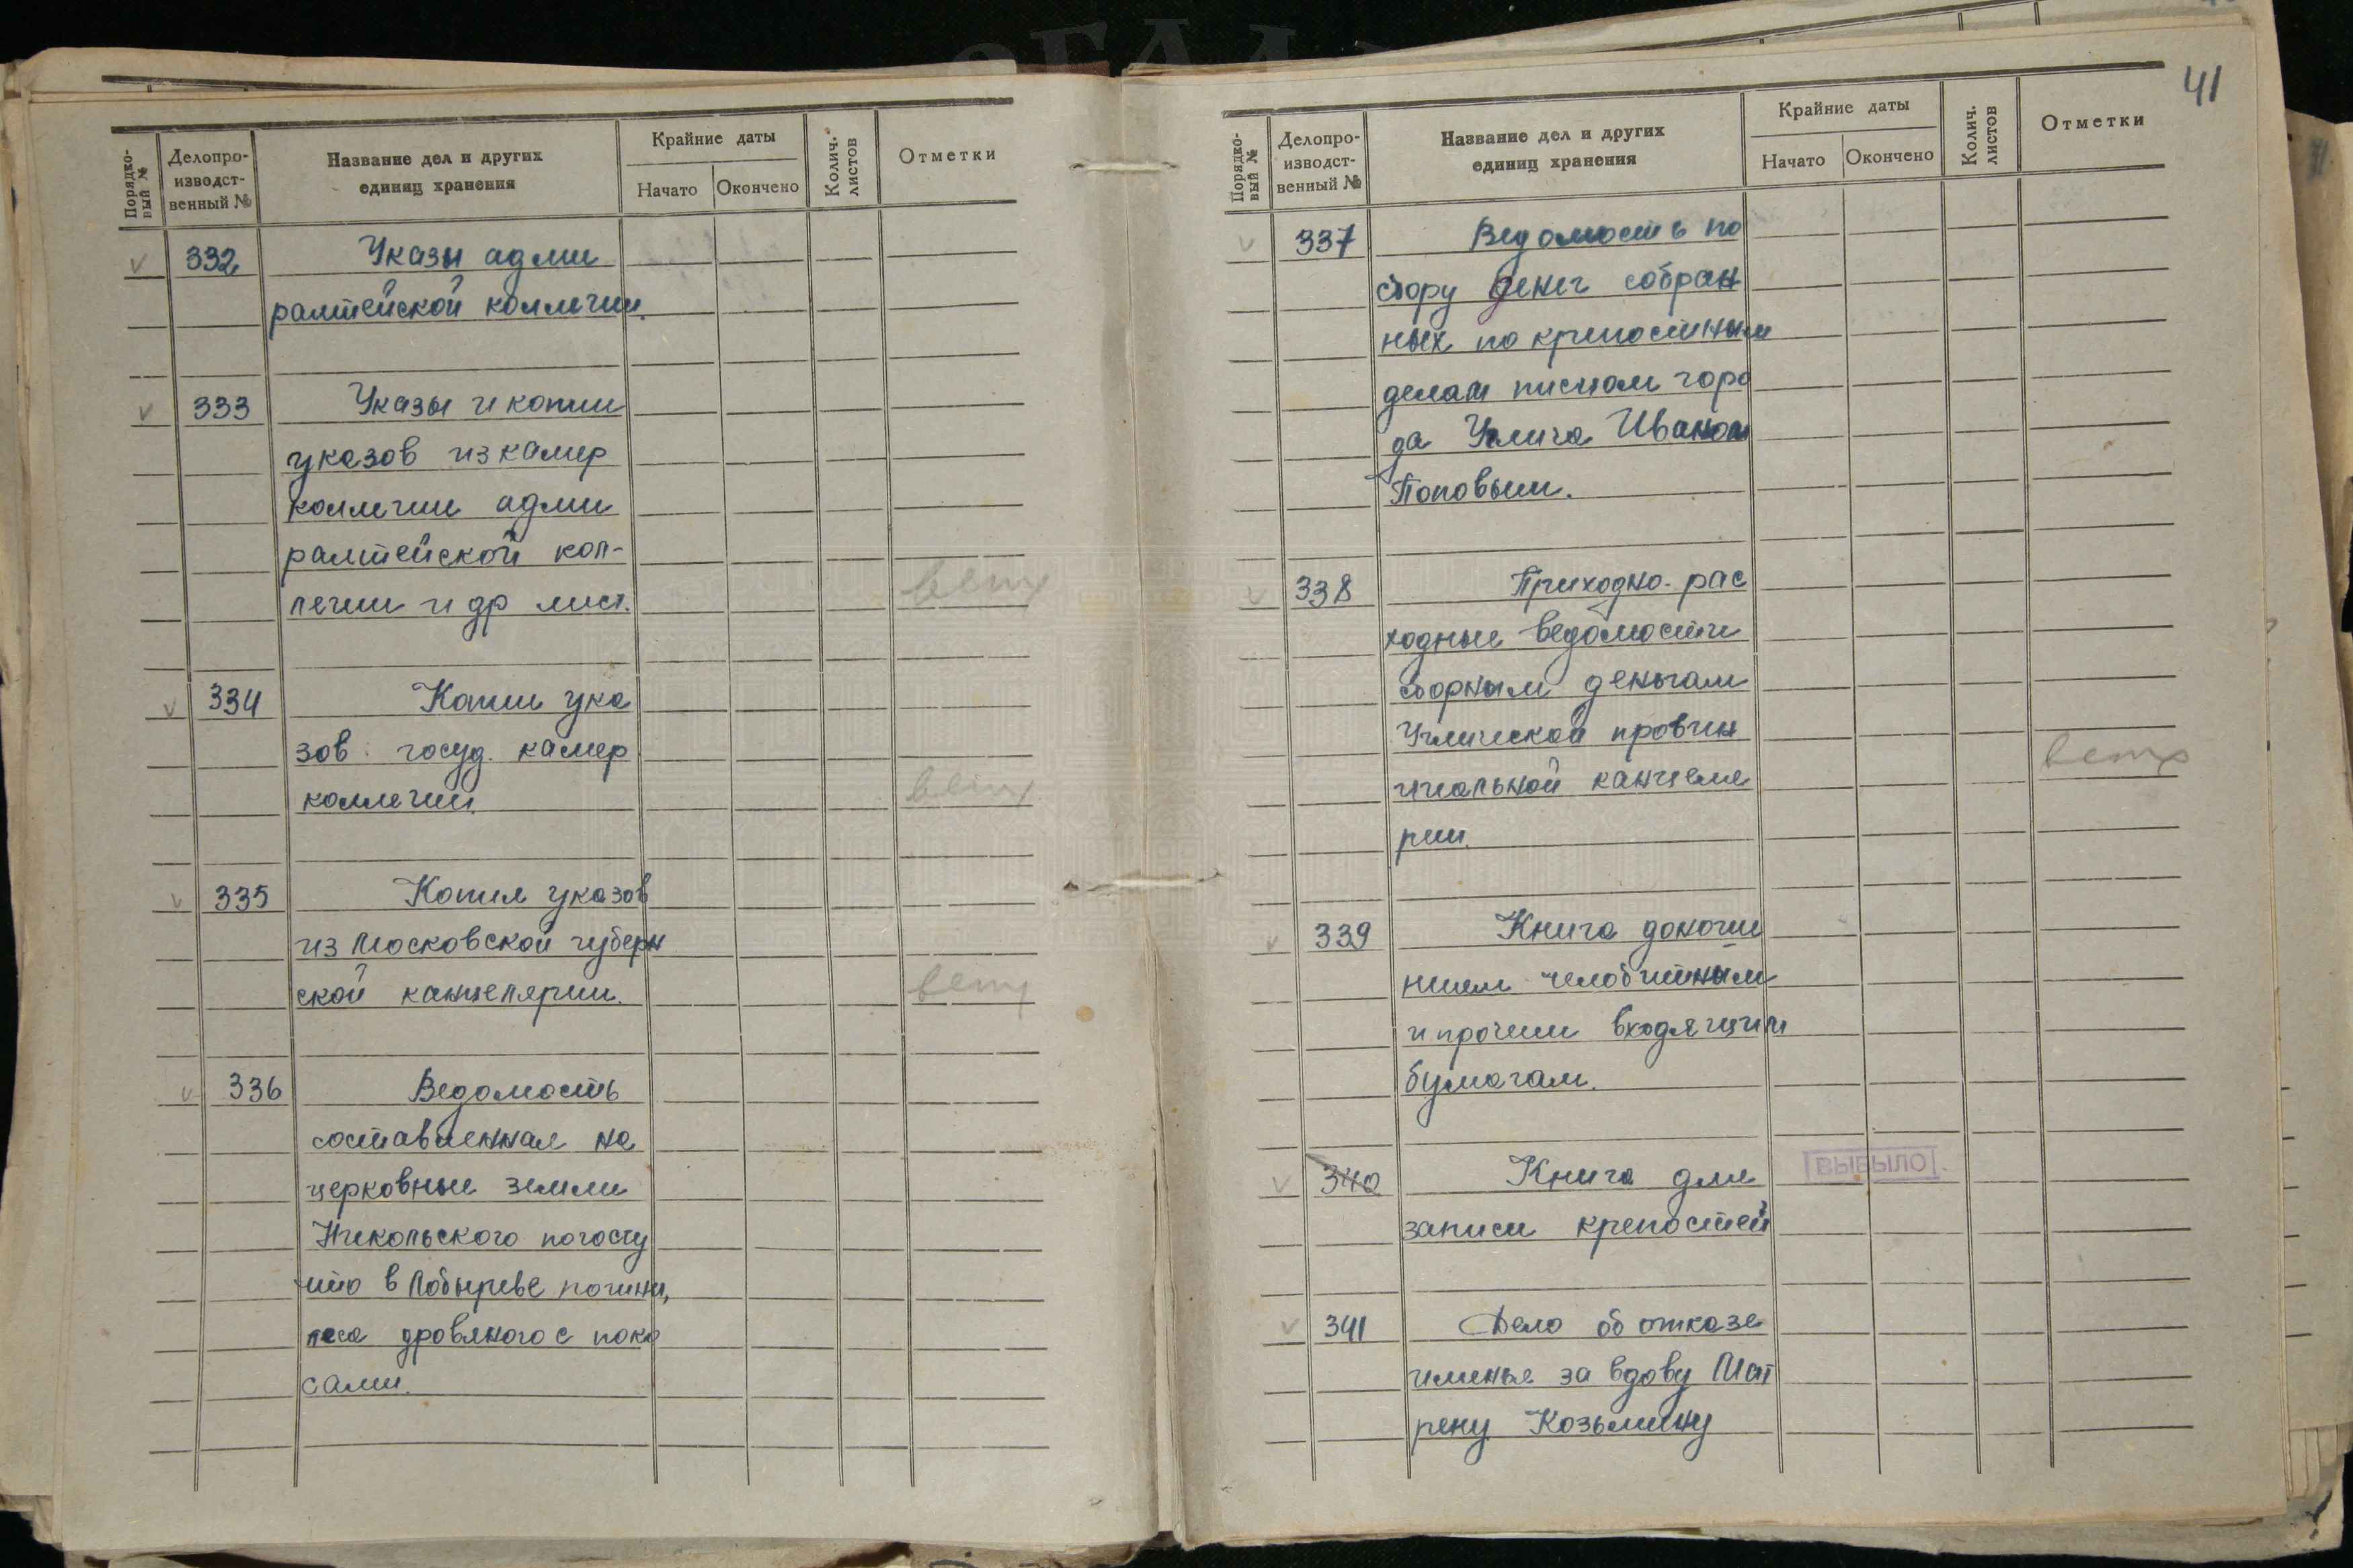 Порядко-
вый №
Делопро-
изводст-
венный №
Название дел и других
единиц хранения
Крайние даты
Начато
Окончено
Колич.
листов
Отметки
v 332 Указы адми
ралтейской коллегии.
v 333 Указы и копии
указов из камер
коллегии адми
ралтейской кол-
легии и др лист. ветх
v 334 Копии ука
зов госуд. камер
коллегии. ветх
v 335 Копия указов
из московской губерн
ской канцелярии. ветх
v 336 Ведомость
составленная на
церковные земли
Никольского погосту
что в Лобыреве починн,
леса дровяного с поко
сами.
41
Порядко-
вый №
Делопро-
изводст-
венный №
Название дел и других
единиц хранения
Крайние даты
Начато
Окончено
Колич.
листов
Отметки
v 337 Ведомость по
сбору денег собран
ных по крепостным
делам писцом горо
да Углича Иваном
Поповым.
v 338 Приходно-рас
ходные ведомости
сборным деньгам
Угличской провин
циальной канцеля ветх
рии.
v 339 Книга доноше
нием челобитным
и прочим входящим
бумагам.
v 340 Книга для ВЫБЫЛО
записи крепостей
v 341 Дело об отказе
именья за вдову Мат
рену Козьмину